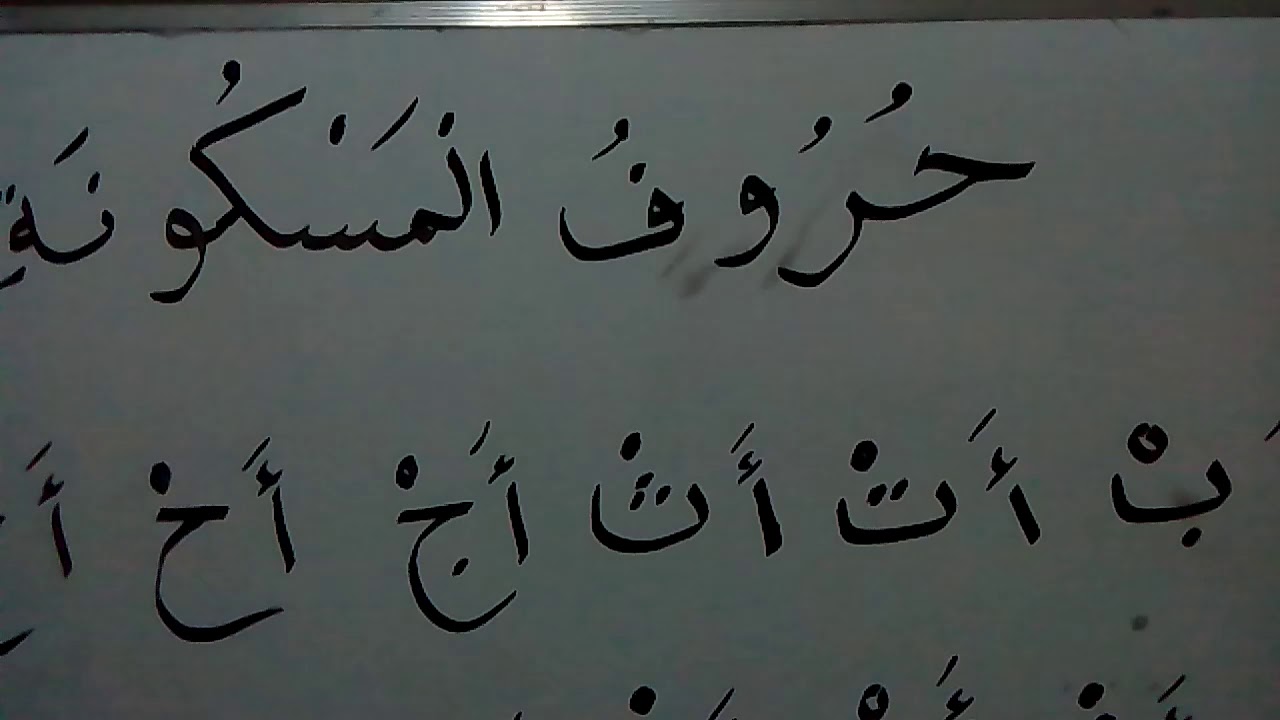 حُرُوفُ الْمَسْكُونَةِ
بْ أَتْ أَثْ أَجْ أَحْ أَ